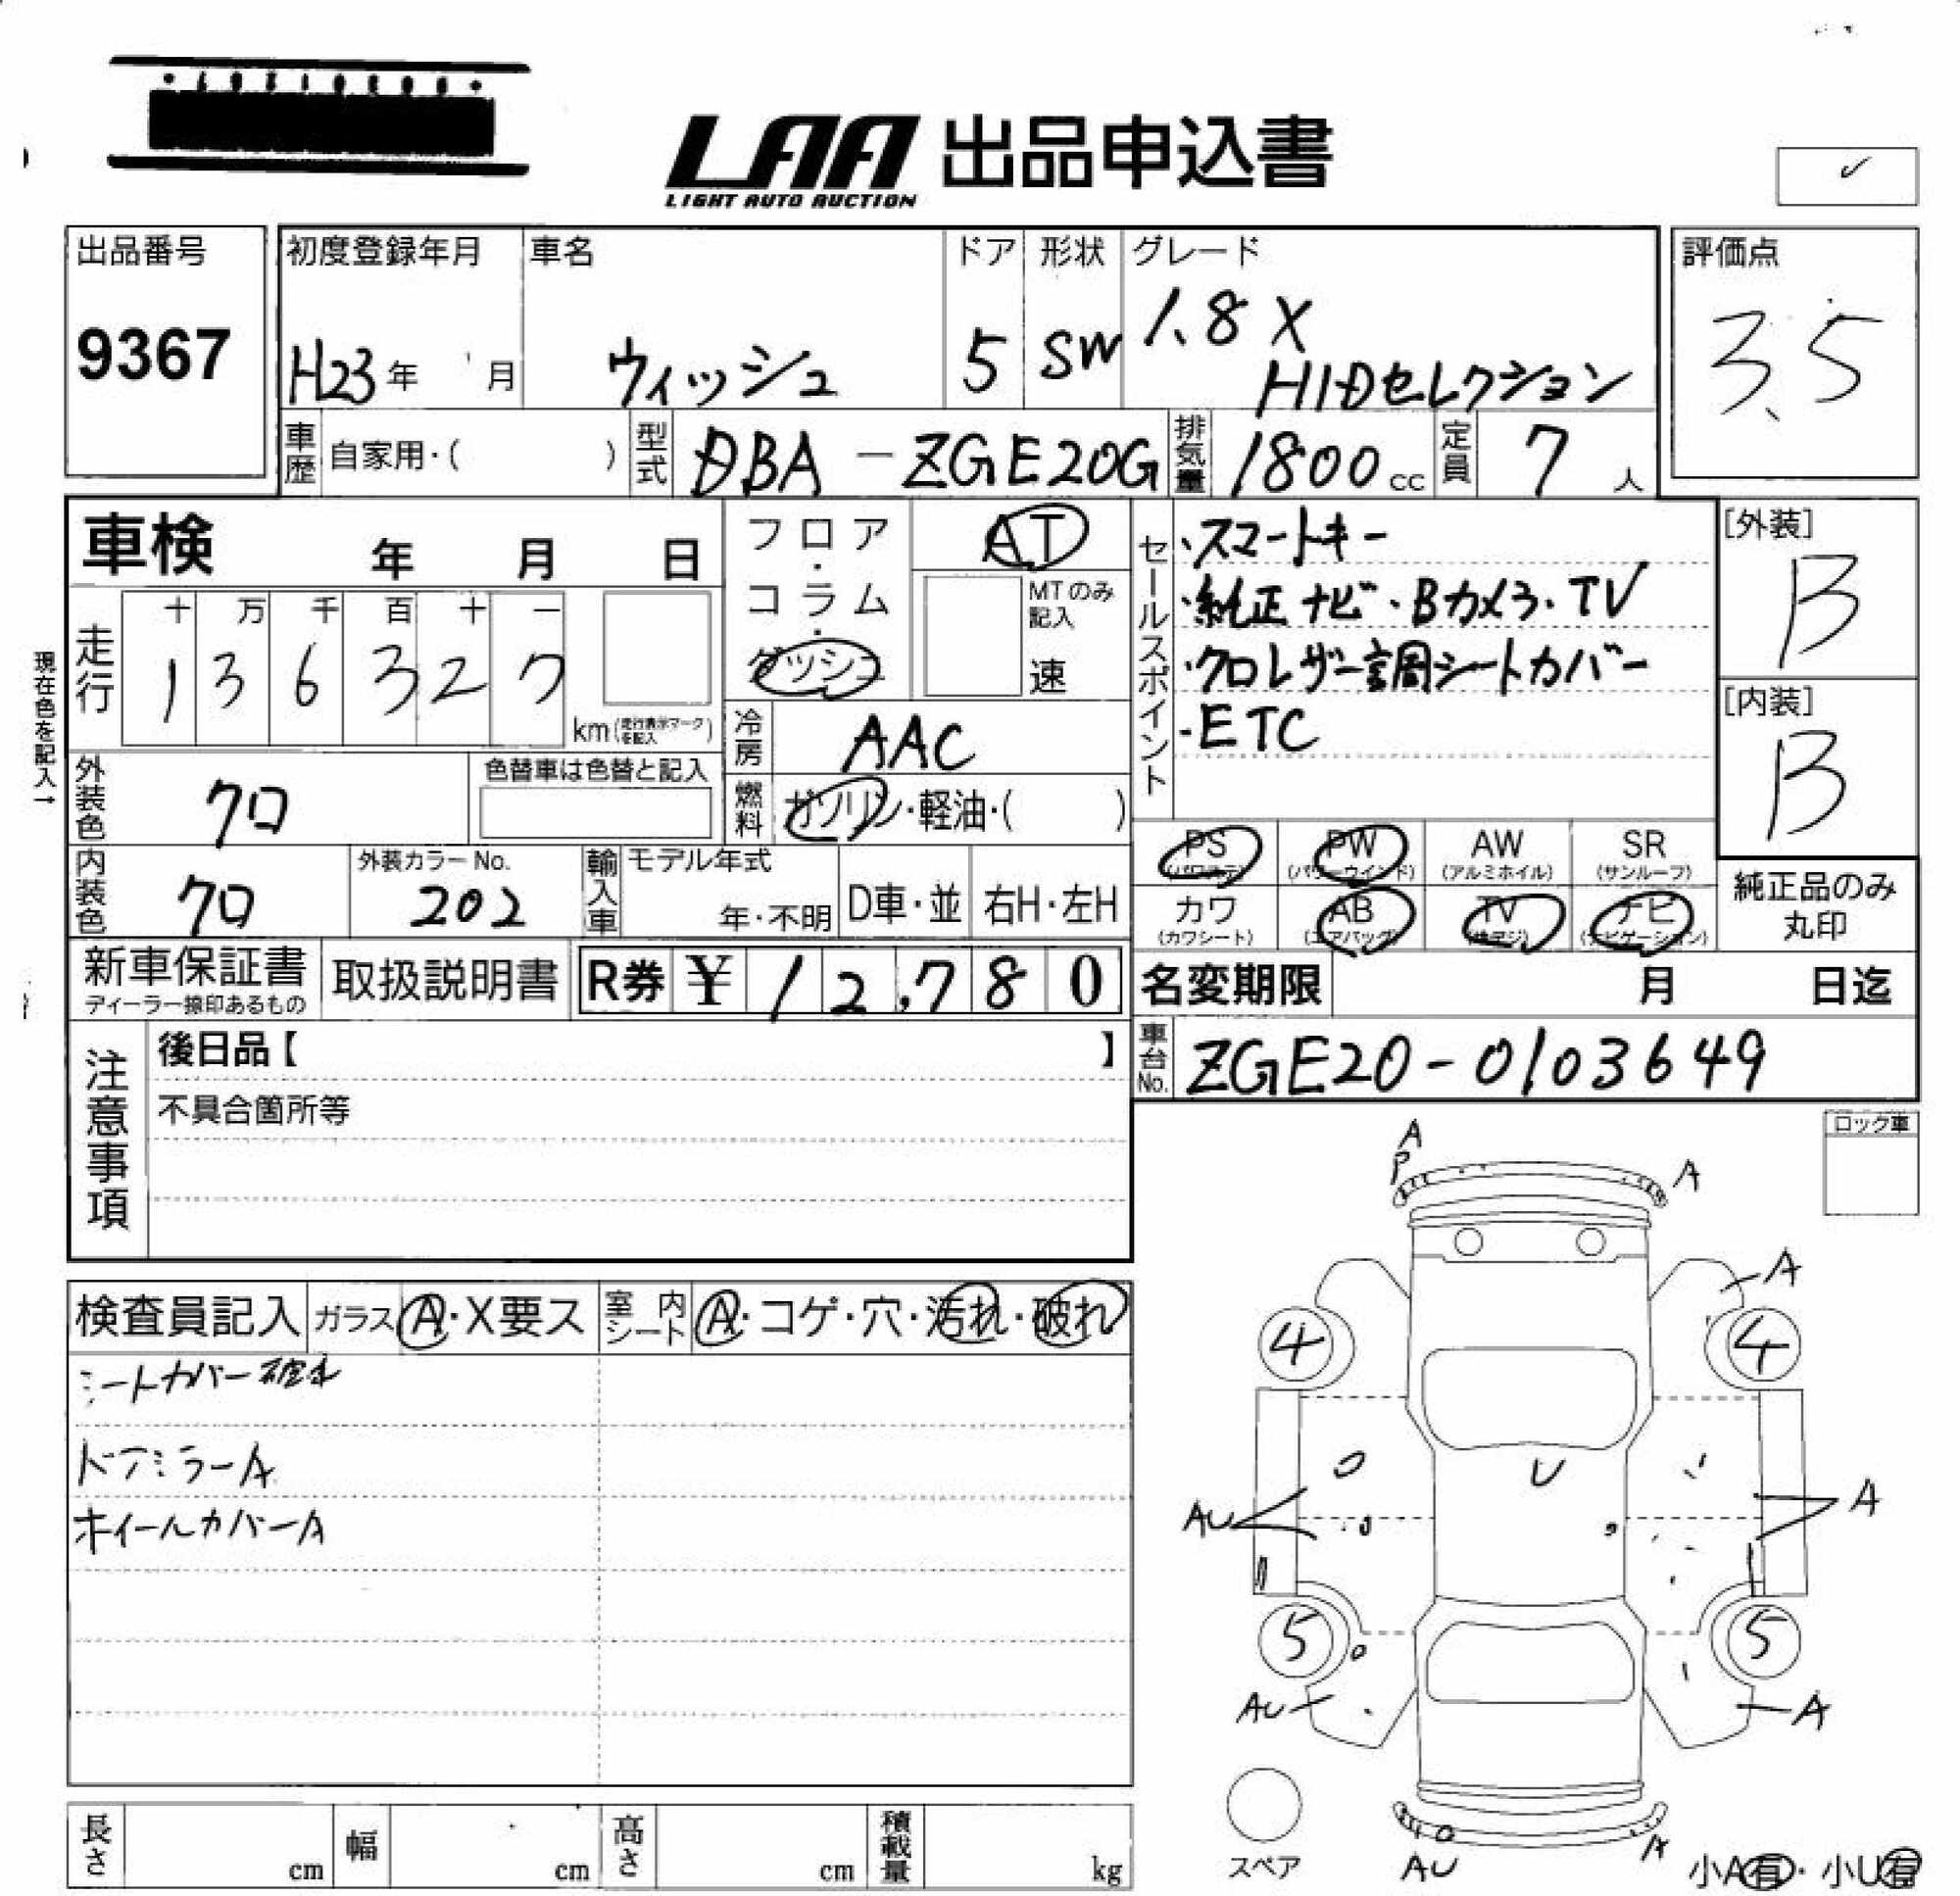 LAA 出品申込書
LIGHT AUTO AUCTION
出品番号 初度登録年月 車名 ドア 形状 グレード 評価点
9367 H23年 月 ウィッシュ 5 SW 1.8X HIDセレクション 3.5
車歴 自家用・( ) 型式 DBA-ZGE20G 排気量 1800cc 定員 7人
車検 年 月 日
フロア・コラム・ダッシュ AT
MTのみ記入 速
セールスポイント
・スマートキー
・純正ナビ・Bカメラ・TV
・クロレザー調シートカバー
・ETC
[外装] B
[内装] B
現在色を記入→
走行 十 万 千 百 十 一
1 3 6 3 2 7
km(走行表示マークを記入)
冷房 AAC
外装色 クロ 色替車は色替と記入
燃料 ガソリン・軽油・( )
内装色 クロ 外装カラーNo. 202 輸入車 モデル年式 年・不明 D車・並 右H・左H
PS (パワステ) PW (パワーウインド) AW (アルミホイル) SR (サンルーフ)
カワ (カワシート) AB (エアバッグ) TV ナビ (ナビゲーション)
純正品のみ
丸印
新車保証書 取扱説明書 R券 ¥12,780
ディーラー捺印あるもの
名変期限 月 日迄
車台No. ZGE20-0103649
注意事項
後日品【 】
不具合箇所等
ロック車
検査員記入 ガラス A・X要ス 室内シート A・コゲ・穴・汚れ・破れ
シートカバー破れ
ドアミラーA
ホイールカバーA
A
P A
A
4 4
U
AU A
5 5
AU A
スペア
AU
小A有・小U有
長さ cm 幅 cm 高さ cm 積載量 kg